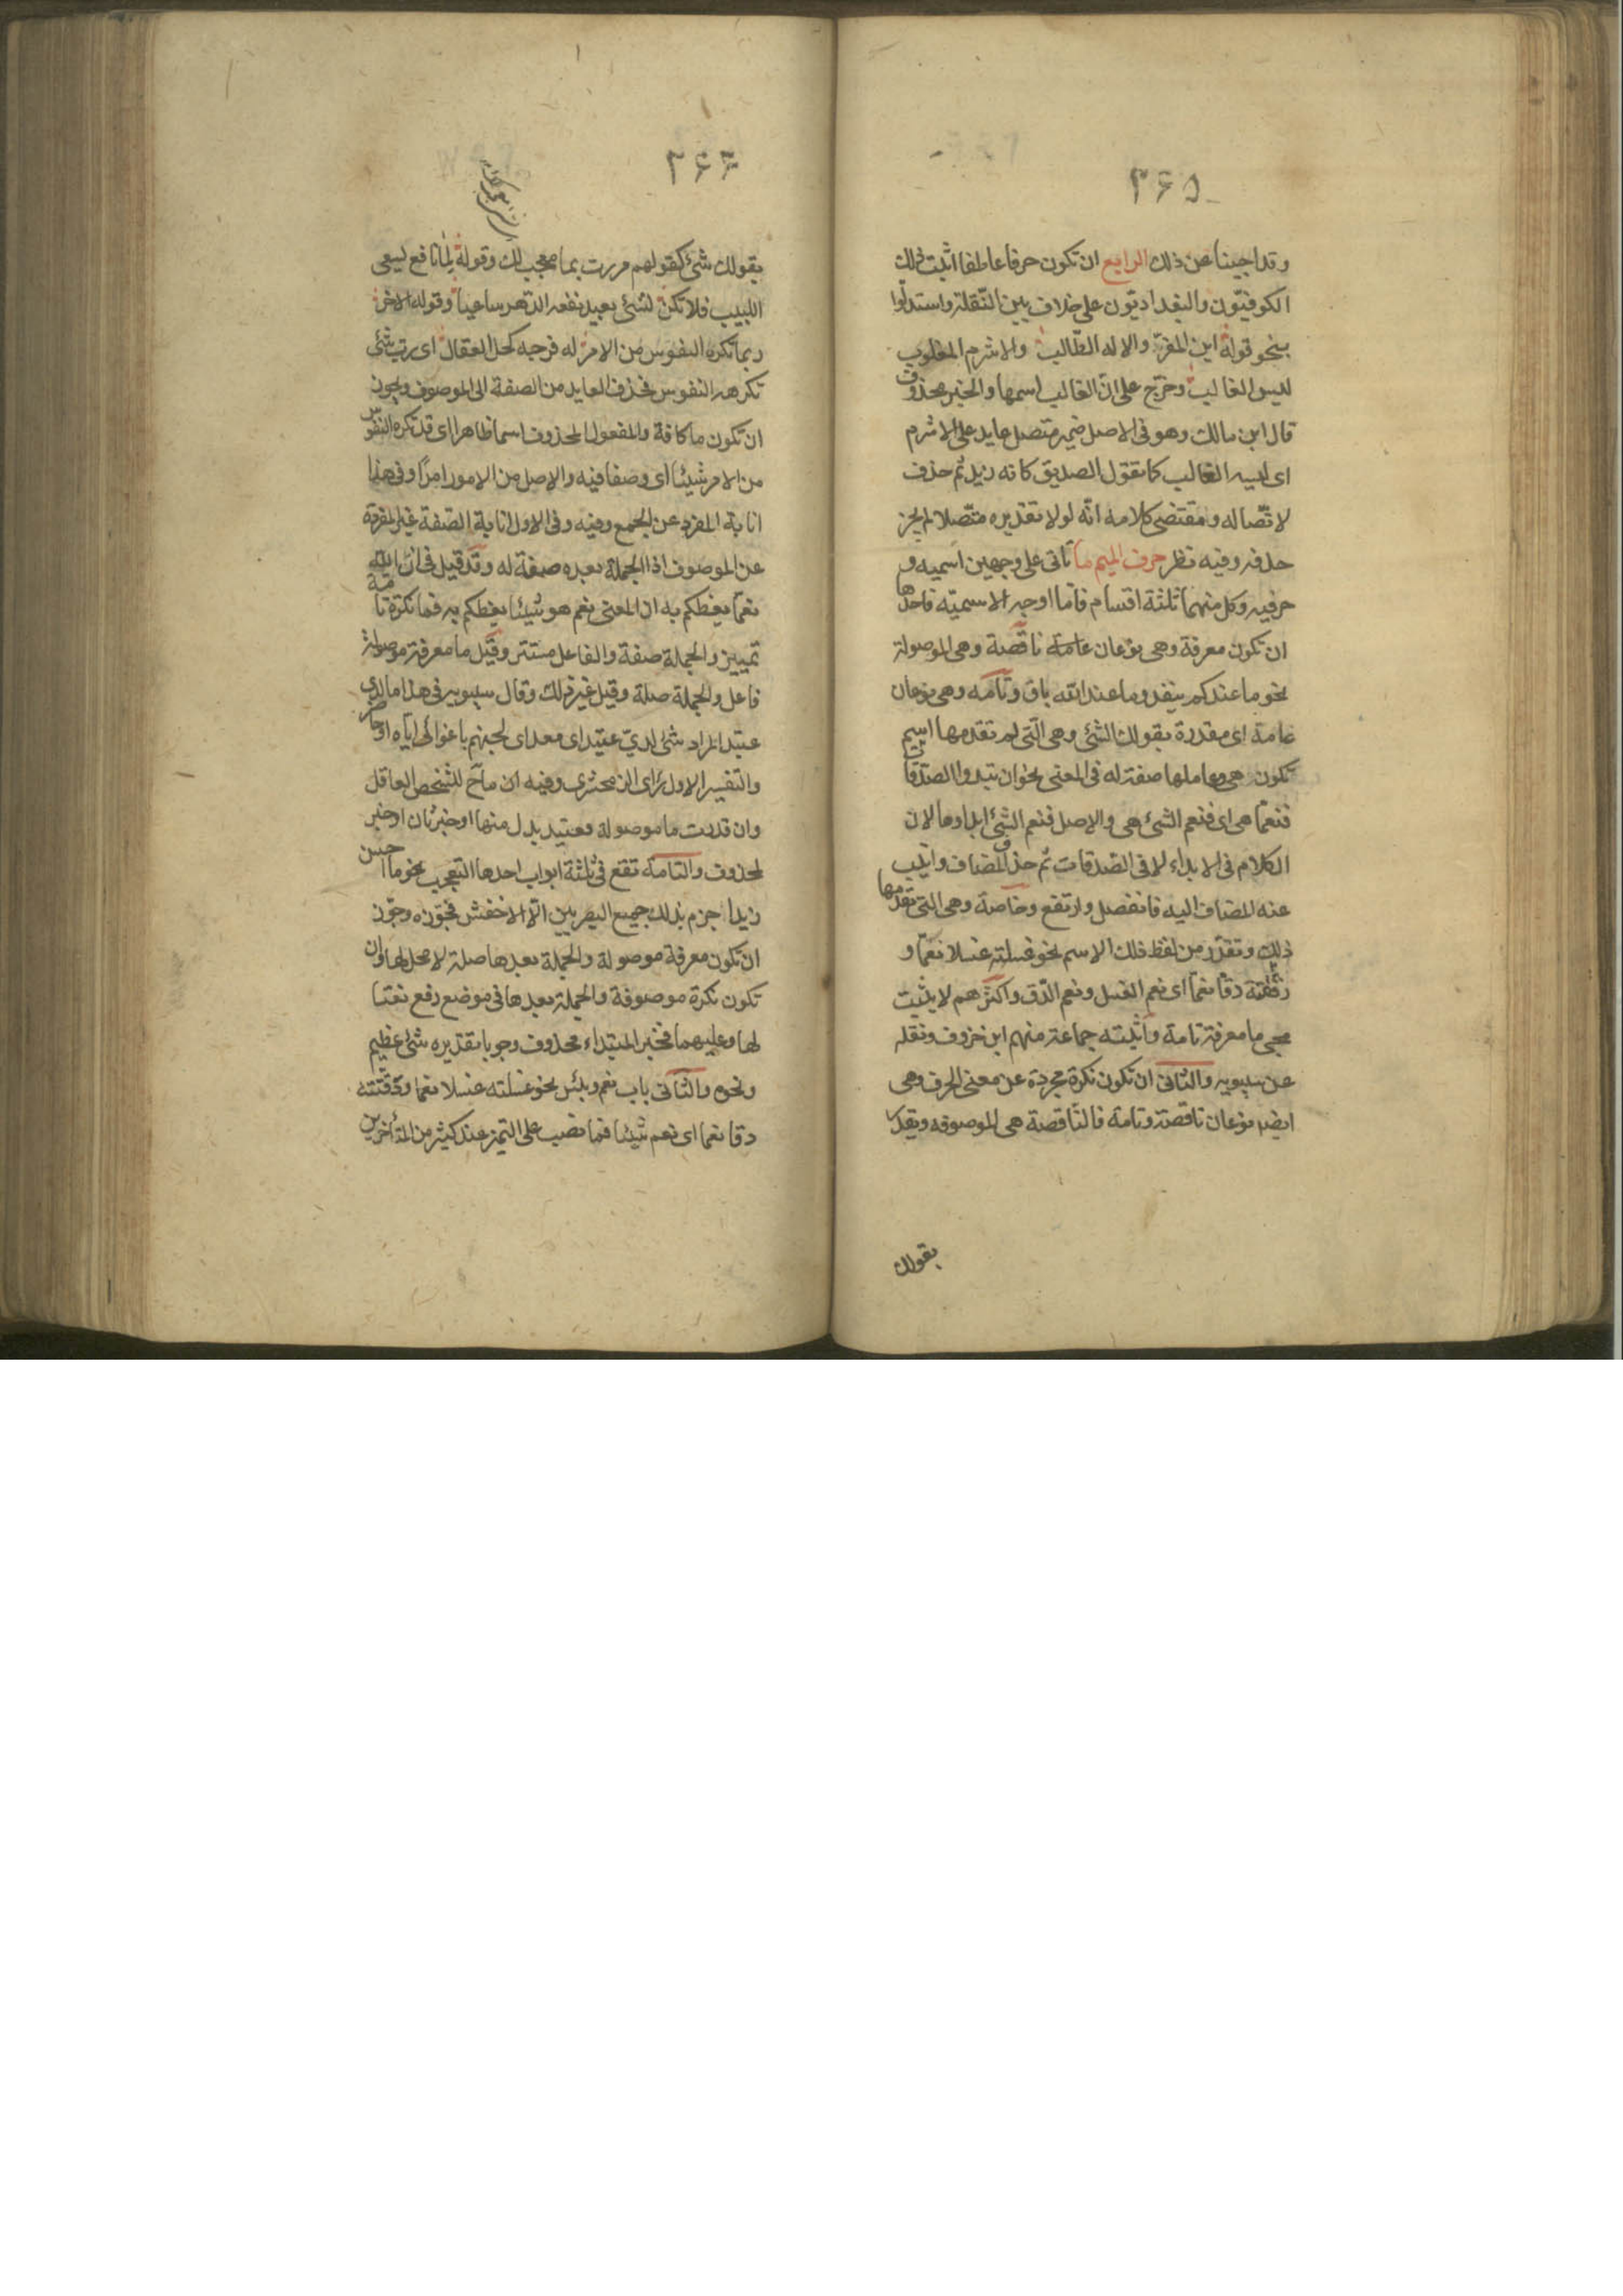 ۲۶۵
وقد اجبنا عن ذلك الرابع ان تكون حرفا عاطفا اثبت ذلك
الكوفيّون والبغداديّون على خلاف بين النّقلة واستدلّوا
بنحو قوله اين المفرّ والاله الطّالب والاشرم المغلوب
ليس الغالب وخرّج على انّ الغالب اسمها والخبر محذوف
قال ابن مالك وهو فى الاصل ضمير متصل عايد على الاشرم
اى ليسه الغالب كما تقول الصديق كانه زيد ثم حذف
لاتّصاله ومقتضى كلامه انّه لولا تقديره متّصلا لم يجز
حذفه وفيه نظر حرف الميم ما تاتى على وجهين اسميه و
حرفيه وكل منهما ثلثة اقسام فاما اوجه الاسميّه فاحدها
ان تكون معرفة وهى نوعان ناقصة وهى الموصولة
نحو ما عندكم ينفد وما عند الله باق وتامه وهى نوعان
عامة اى مقدرة بقولك الشئ وهى الّتى لم تقدمها اسم
تكون هى وعاملها صفة له فى المعنى نحو ان تبدوا الصدقات
فنعمّا هى اى فنعم الشئ هى والاصل فنعم الشئ ابداوها لان
الكلام فى الابداء لا فى الصّدقات ثم حذف المضاف وانيب
عنه المضاف اليه فانفصل وارتفع وخاصة وهى التى تقدمها
ذلك وتقدّر من لفظ ذلك الاسم نحو غسلته غسلا نعمّا و
دققته دقّا نعمّا اى نعم الغسل ونعم الدّق واكثرهم لا يثبت
مجى ما معرفة تامة واثبته جماعة منهم ابن خروف ونقله
عن سيبويه والثانى ان تكون نكرة مجردة عن معنى الحرف وهى
ايضا نوعان ناقصة وتامة فالنّاقصة هى الموصوفه ويقدر
بقولك
۲۶۶
بقولك شئ كقولهم مررت بما معجب لك وقوله لما نافع يسعى
اللبيب فلا تكن لشئ بعيد نفعه الدّهر ساعيا وقوله الاخر
ربما تكره النفوس من الامر له فرجه كحل العقال اى رب شئ
تكرهه النفوس فحذف العايد من الصفة الى الموصوف ويجوز
ان تكون ما كافة والمفعول المحذوف اسما ظاهرا اى قد تكره النفوس
من الامر شيئا اى وصفا فيه والاصل من الامور امرًا وفى هذا
انابة المفرد عن الجمع وفيه وفى الاول انابة الصّفة غير المفردة
عن الموصوف اذ الجملة بعده صفة له وقد قيل فى انّ الله
نعمّا يعظكم به ان المعنى نعم هو شيئا يعظكم به فما نكرة تامة
تمييز والجملة صفة والفاعل مستتر وقيل ما معرفة موصولة
فاعل والجملة صلة وقيل غير ذلك وقال سيبويه فى هذا ما لدى
عتيد المراد شئ لدىّ عتيد اى معد اى لجهنم باغوائى اياه او حاضر
والتفسير الاول رأى الزمخشرى وفيه ان ما ح للشخص العاقل
وان قدرت ما موصولة فعتيد بدل منها او خبر ثان او خبر
لمحذوف والتامة تقع فى ثلثة ابواب احدها التعجب نحو ما احسن
زيدا جزم بذلك جميع البصريين الّا الاخفش فجوّزه وجوّز
ان تكون معرفة موصولة والجملة بعدها صلة لا محل لها وان
تكون نكرة موصوفة والجملة بعدها فى موضع رفع نعتا
لها وعليهما فخبر المبتداء محذوف وجوبا تقديره شئ عظيم
ونحوه والثانى باب نعم وبئس نحو غسلته غسلا نعما ودققته
دقا نعما اى نعم شيئا فما نصب على التميز عند كثير من المتأخرين